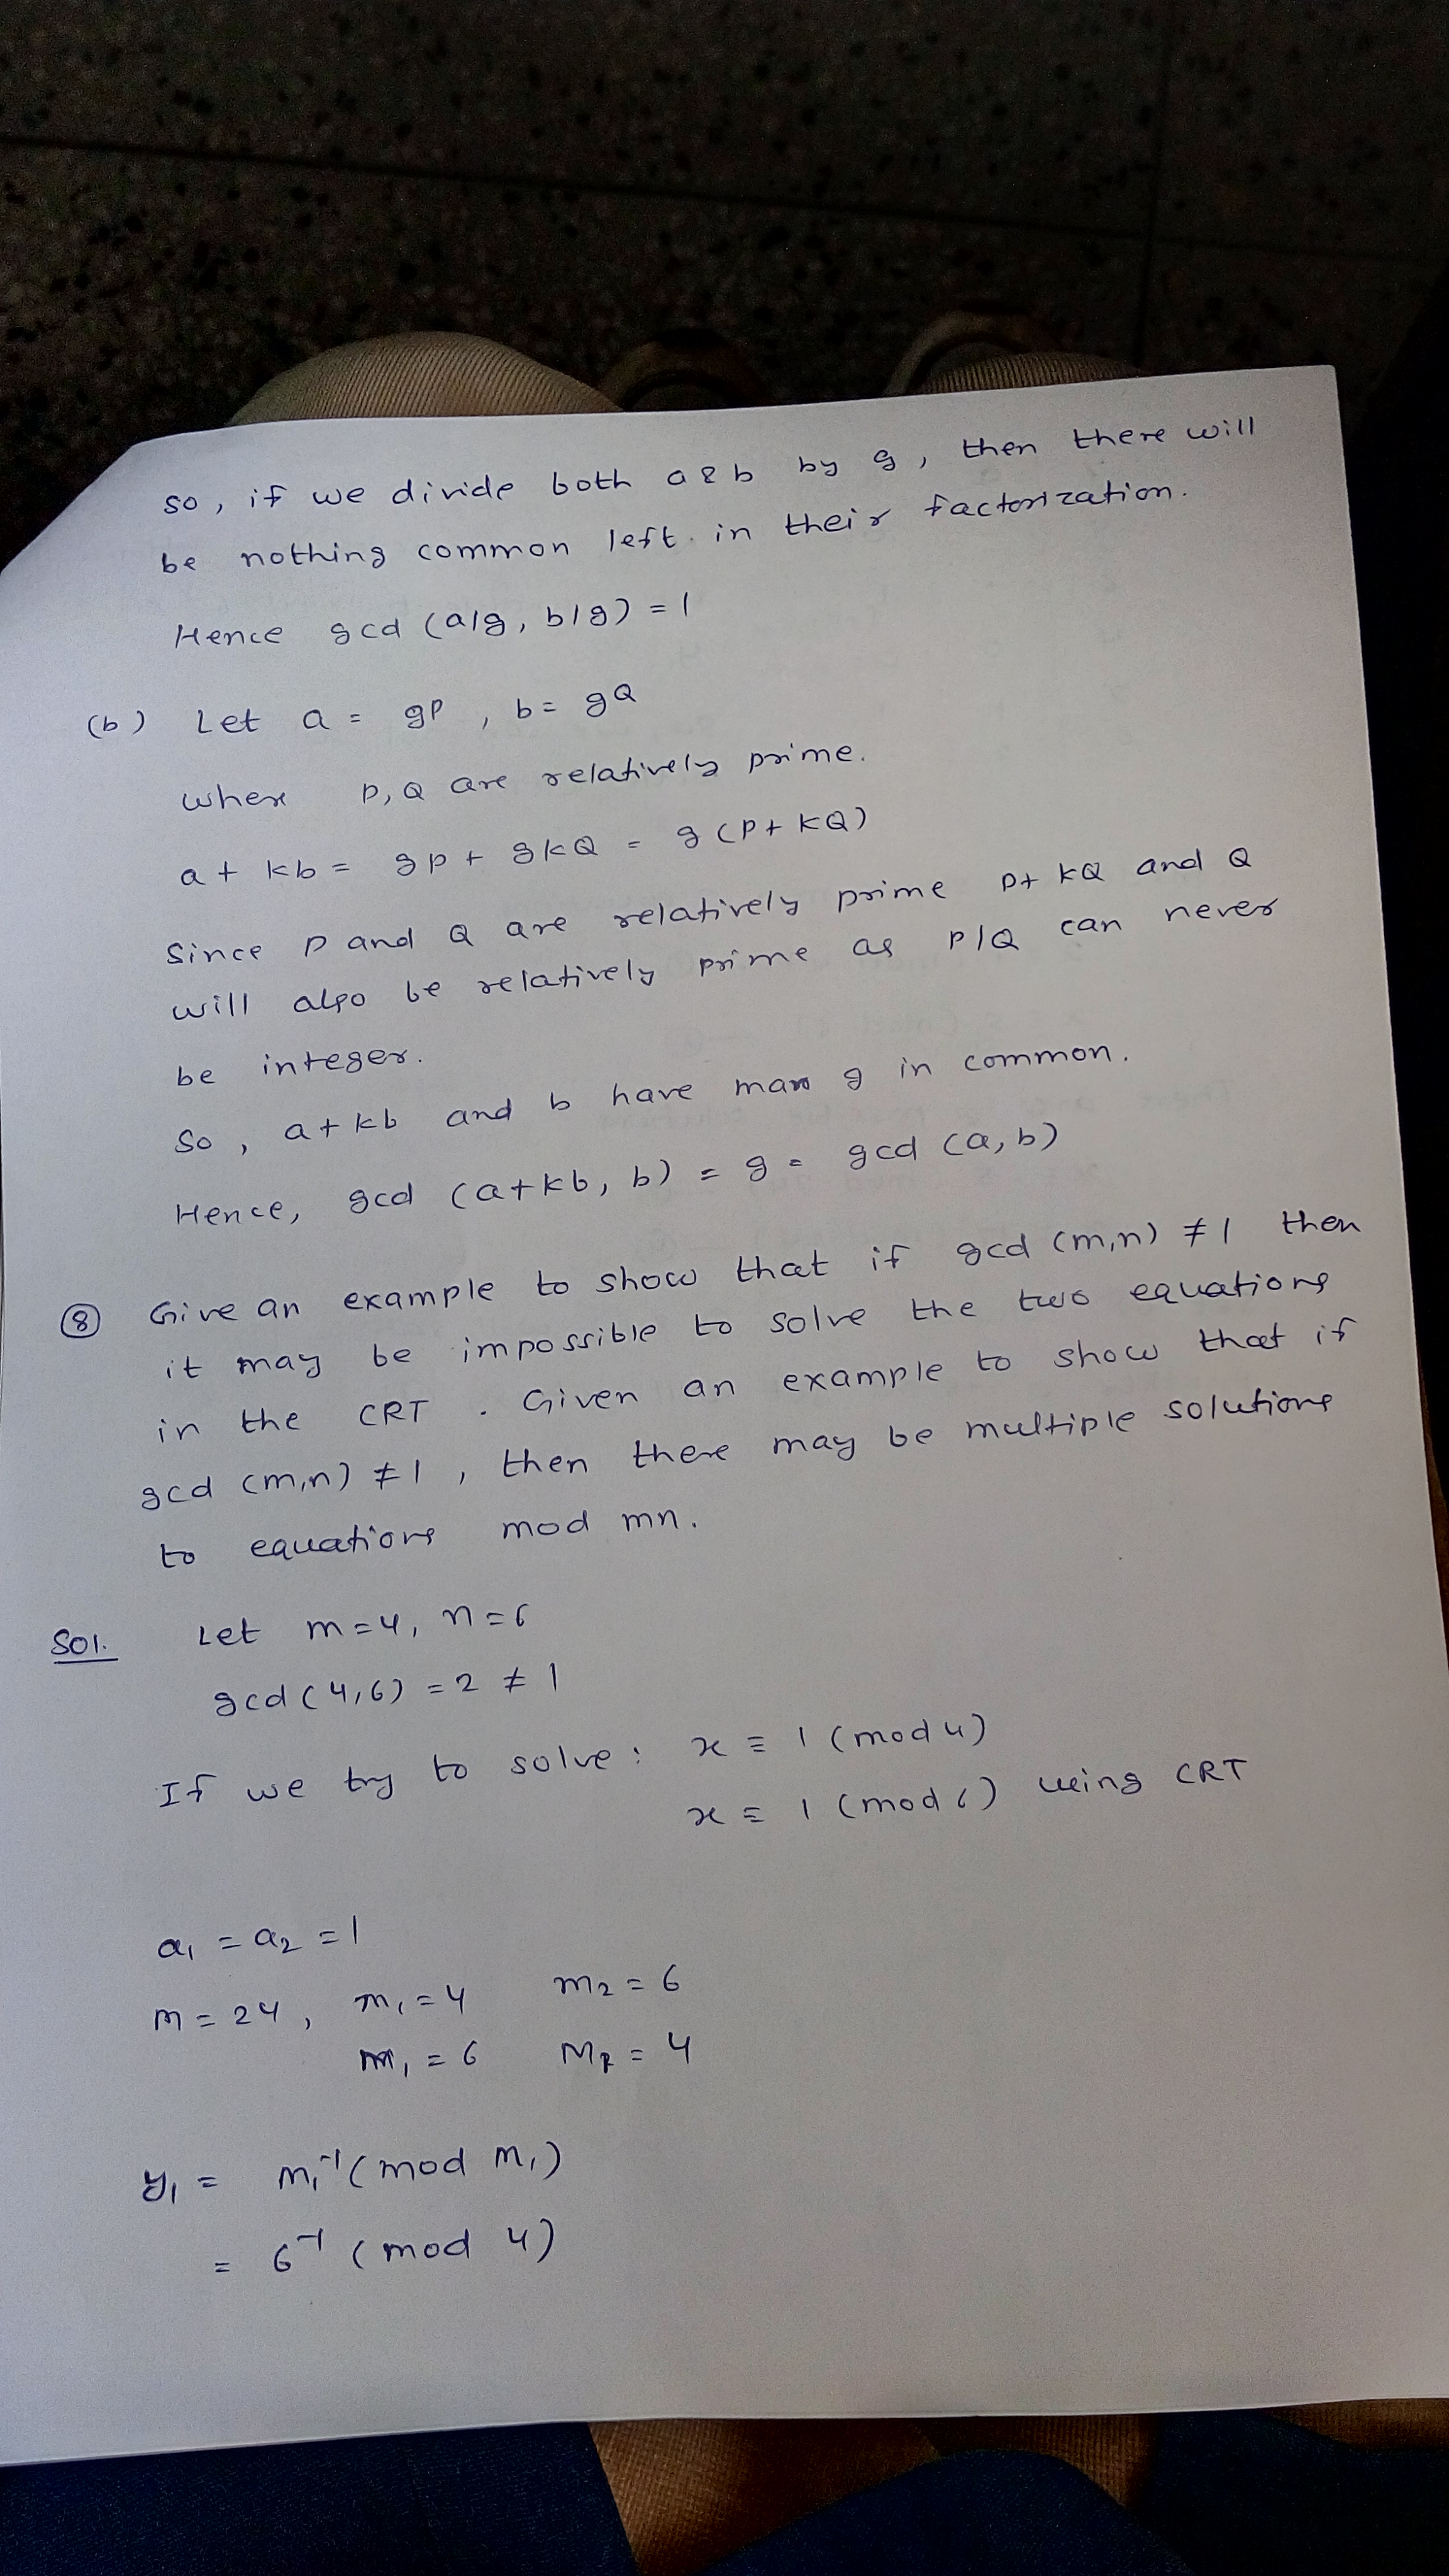 so, if we divide both a & b by g, then there will
be nothing common left in their factorization.
Hence gcd (a/g, b/g) = 1
(b) Let a = gP, b = gQ
where P, Q are relatively prime.
a + kb = gp + gkQ = g (P + kQ)
Since P and Q are relatively prime P+ kQ and Q
will also be relatively prime as P/Q can never
be integer.
So, a + kb and b have max g in common.
Hence, gcd (a+kb, b) = g = gcd (a, b)
⑧ Give an example to show that if gcd (m,n) ≠ 1 then
it may be impossible to solve the two equations
in the CRT. Given an example to show that if
gcd (m,n) ≠ 1, then there may be multiple solutions
to equations mod mn.
Sol. Let m=4, n=6
gcd (4,6) = 2 ≠ 1
If we try to solve: x ≡ 1 (mod 4)
x ≡ 1 (mod 6) using CRT
a₁ = a₂ = 1
M = 24, m₁ = 4 m₂ = 6
M₁ = 6 M₂ = 4
y₁ = M₁⁻¹ (mod m₁)
= 6⁻¹ (mod 4)